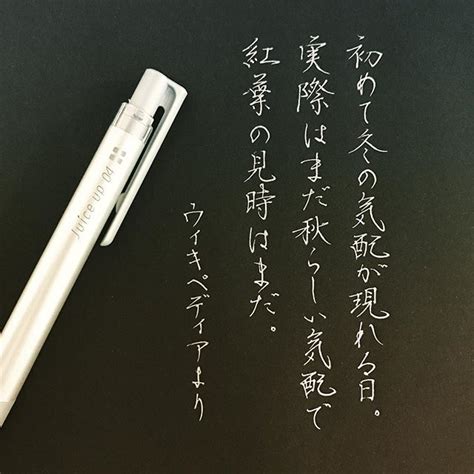 初めて冬の気配が現れる日。
実際はまだ秋らしい気配で
紅葉の見時はまだ。
ウィキペディアまり
Juice up 04